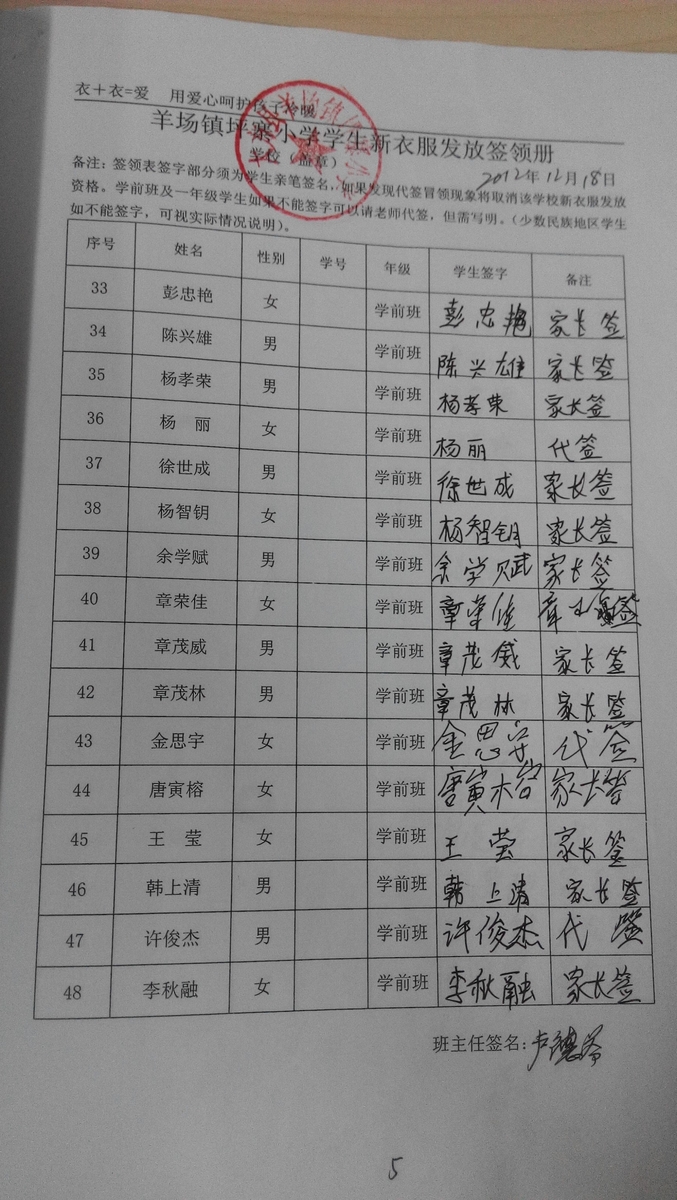 衣＋衣=爱 用爱心呵护孩子冷暖
羊场镇坪寨小学学生新衣服发放签领册
学校（盖章）
2012年12月18日
备注：签领表签字部分须为学生亲笔签名，如果发现代签冒领现象将取消该学校新衣服发放
资格。学前班及一年级学生如果不能签字可以请老师代签，但需写明。（少数民族地区学生
如不能签字，可视实际情况说明）。
序号 姓名 性别 学号 年级 学生签字 备注
33 彭忠艳 女 学前班 彭忠艳 家长签
34 陈兴雄 男 学前班 陈兴雄 家长签
35 杨孝荣 男 学前班 杨孝荣 家长签
36 杨 丽 女 学前班 杨丽 代签
37 徐世成 男 学前班 徐世成 家长签
38 杨智钥 女 学前班 杨智钥 家长签
39 余学赋 男 学前班 余学赋 家长签
40 章荣佳 女 学前班 章荣佳 签
41 章茂威 男 学前班 章茂威 家长签
42 章茂林 男 学前班 章茂林 家长签
43 金思宇 女 学前班 金思宇 代签
44 唐寅榕 女 学前班 唐寅榕 家长签
45 王 莹 女 学前班 王莹 家长签
46 韩上清 男 学前班 韩上清 家长签
47 许俊杰 男 学前班 许俊杰 代签
48 李秋融 女 学前班 李秋融 家长签
班主任签名：卢德
5